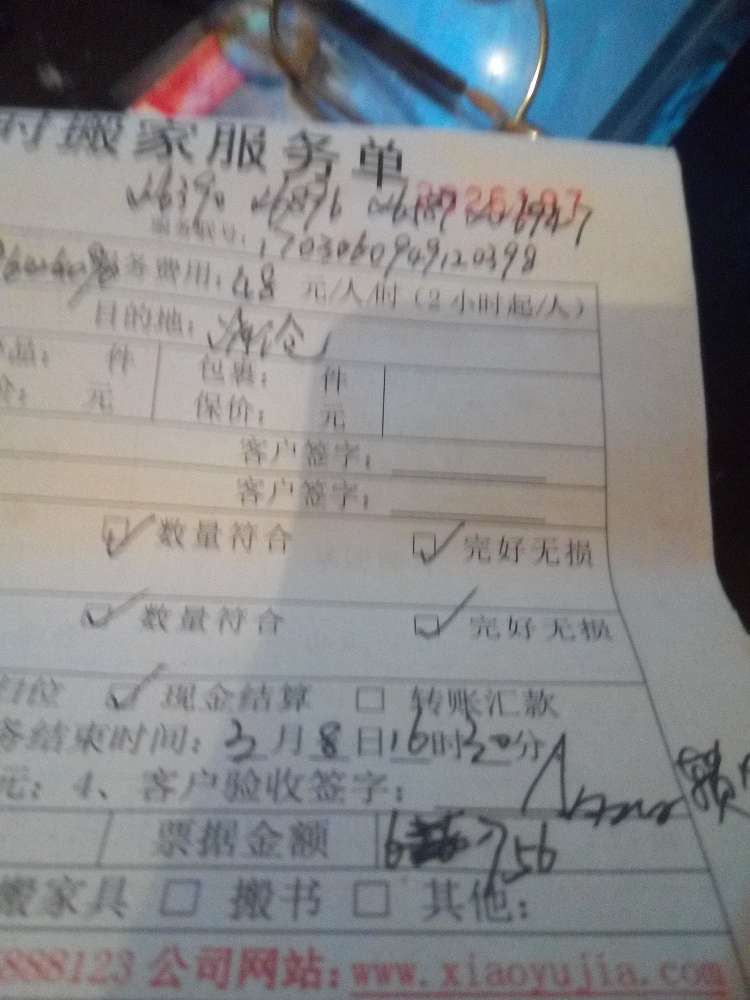 时搬家服务单
26390 26876 26987 26947
服务账号：1703060949120398
服务费用：48 元/人/时（2小时起/人）
目的地：海沧
品： 件 包裹： 件
价： 元 保价： 元
客户签字：
客户签字：
数量符合 完好无损
数量符合 完好无损
归位 现金结算 转账汇款
务结束时间：3月8日16时30分
元；4、客户验收签字：
票据金额 756
搬家具 搬书 其他：
888123 公司网站：www.xiaoyujia.com